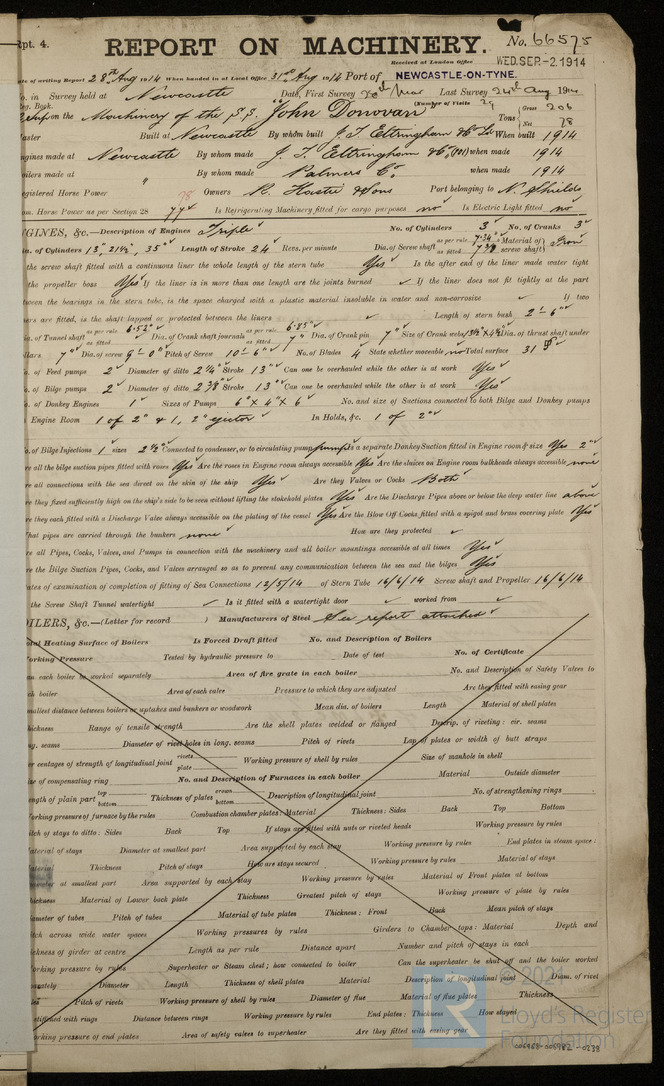 Rpt. 4.
REPORT ON MACHINERY. No. 66575
Received at London Office WED. SEP. -2. 1914
te of writing Report 28th Aug 1914 When handed in at Local Office 31st Aug 1914 Port of NEWCASTLE-ON-TYNE.
o. in Survey held at Newcastle Date, First Survey 20th Mar Last Survey 24th Aug 1914
eg. Book. (Number of Visits 29
on the Machinery of the S.S. "John Donovan" Tons { Gross 206 Net 78
aster Built at Newcastle By whom built J. T. Eltringham & Co Ld When built 1914
ngines made at Newcastle By whom made J. T. Eltringham & Co. (701) when made 1914
oilers made at " By whom made Palmers Co. when made 1914
egistered Horse Power Owners R. Hastie & Sons Port belonging to N. Shields
om. Horse Power as per Section 28 77 78 Is Refrigerating Machinery fitted for cargo purposes no Is Electric Light fitted no
GINES, &c.—Description of Engines Triple No. of Cylinders 3 No. of Cranks 3
ia. of Cylinders 13", 21½", 35" Length of Stroke 24 Revs. per minute Dia. of Screw shaft as per rule 7.34" as fitted 7⅜" Material of screw shaft } Iron
the screw shaft fitted with a continuous liner the whole length of the stern tube Yes Is the after end of the liner made water tight
the propeller boss Yes If the liner is in more than one length are the joints burned If the liner does not fit tightly at the part
tween the bearings in the stern tube, is the space charged with a plastic material insoluble in water and non-corrosive If two
ers are fitted, is the shaft lapped or protected between the liners Length of stern bush 2'-6"
ia. of Tunnel shaft as per rule 6.52" as fitted Dia. of Crank shaft journals as per rule 6.85" as fitted 7" Dia. of Crank pin 7" Size of Crank webs 13½" x 4½" Dia. of thrust shaft under
llars 7" Dia. of screw 9'-0" Pitch of Screw 10'-6" No. of Blades 4 State whether moveable no Total surface 31
o. of Feed pumps 2 Diameter of ditto 2¼" Stroke 13" Can one be overhauled while the other is at work Yes
o. of Bilge pumps 2 Diameter of ditto 2⅜" Stroke 13" Can one be overhauled while the other is at work Yes
o. of Donkey Engines 1 Sizes of Pumps 6" x 4" x 6" No. and size of Suctions connected to both Bilge and Donkey pumps
Engine Room 1 of 2" & 1, 2" ejector In Holds, &c. 1 of 2"
o. of Bilge Injections 1 sizes 2½" Connected to condenser, or to circulating pump pump Is a separate Donkey Suction fitted in Engine room & size Yes 2"
re all the bilge suction pipes fitted with roses Yes Are the roses in Engine room always accessible Yes Are the sluices on Engine room bulkheads always accessible none
re all connections with the sea direct on the skin of the ship Yes Are they Valves or Cocks Both
re they fixed sufficiently high on the ship's side to be seen without lifting the stokehold plates Yes Are the Discharge Pipes above or below the deep water line above
re they each fitted with a Discharge Valve always accessible on the plating of the vessel Yes Are the Blow Off Cocks fitted with a spigot and brass covering plate Yes
hat pipes are carried through the bunkers none How are they protected
re all Pipes, Cocks, Valves, and Pumps in connection with the machinery and all boiler mountings accessible at all times Yes
re the Bilge Suction Pipes, Cocks, and Valves arranged so as to prevent any communication between the sea and the bilges Yes
ates of examination of completion of fitting of Sea Connections 12/5/14 of Stern Tube 16/6/14 Screw shaft and Propeller 16/6/14
the Screw Shaft Tunnel watertight Is it fitted with a watertight door worked from
OILERS, &c.—(Letter for record ) Manufacturers of Steel See report attached
otal Heating Surface of Boilers Is Forced Draft fitted No. and Description of Boilers
orking Pressure Tested by hydraulic pressure to Date of test No. of Certificate
an each boiler be worked separately Area of fire grate in each boiler No. and Description of Safety Valves to
ch boiler Area of each valve Pressure to which they are adjusted Are they fitted with easing gear
mallest distance between boilers or uptakes and bunkers or woodwork Mean dia. of boilers Length Material of shell plates
hickness Range of tensile strength Are the shell plates welded or flanged Descrip. of riveting: cir. seams
ng. seams Diameter of rivet holes in long. seams Pitch of rivets Lap of plates or width of butt straps
er centages of strength of longitudinal joint rivets plate Working pressure of shell by rules Size of manhole in shell
ize of compensating ring No. and Description of Furnaces in each boiler Material Outside diameter
ength of plain part top bottom Thickness of plates crown bottom Description of longitudinal joint No. of strengthening rings
orking pressure of furnace by the rules Combustion chamber plates: Material Thickness: Sides Back Top Bottom
itch of stays to ditto: Sides Back Top If stays are fitted with nuts or riveted heads Working pressure by rules
aterial of stays Diameter at smallest part Area supported by each stay Working pressure by rules End plates in steam space:
aterial Thickness Pitch of stays How are stays secured Working pressure by rules Material of stays
ameter at smallest part Area supported by each stay Working pressure by rules Material of Front plates at bottom
hickness Material of Lower back plate Thickness Greatest pitch of stays Working pressure of plate by rules
iameter of tubes Pitch of tubes Material of tube plates Thickness: Front Back Mean pitch of stays
itch across wide water spaces Working pressures by rules Girders to Chamber tops: Material Depth and
ickness of girder at centre Length as per rule Distance apart Number and pitch of stays in each
orking pressure by rules Superheater or Steam chest; how connected to boiler Can the superheater be shut off and the boiler worked
parately Diameter Length Thickness of shell plates Material Description of longitudinal joint Diam. of rivet
les Pitch of rivets Working pressure of shell by rules Diameter of flue Material of flue plates Thickness
stiffened with rings Distance between rings Working pressure by rules End plates: Thickness How stayed
orking pressure of end plates Area of safety valves to superheater Are they fitted with easing gear
Lloyd's Register
Foundation
006968-006982-0238